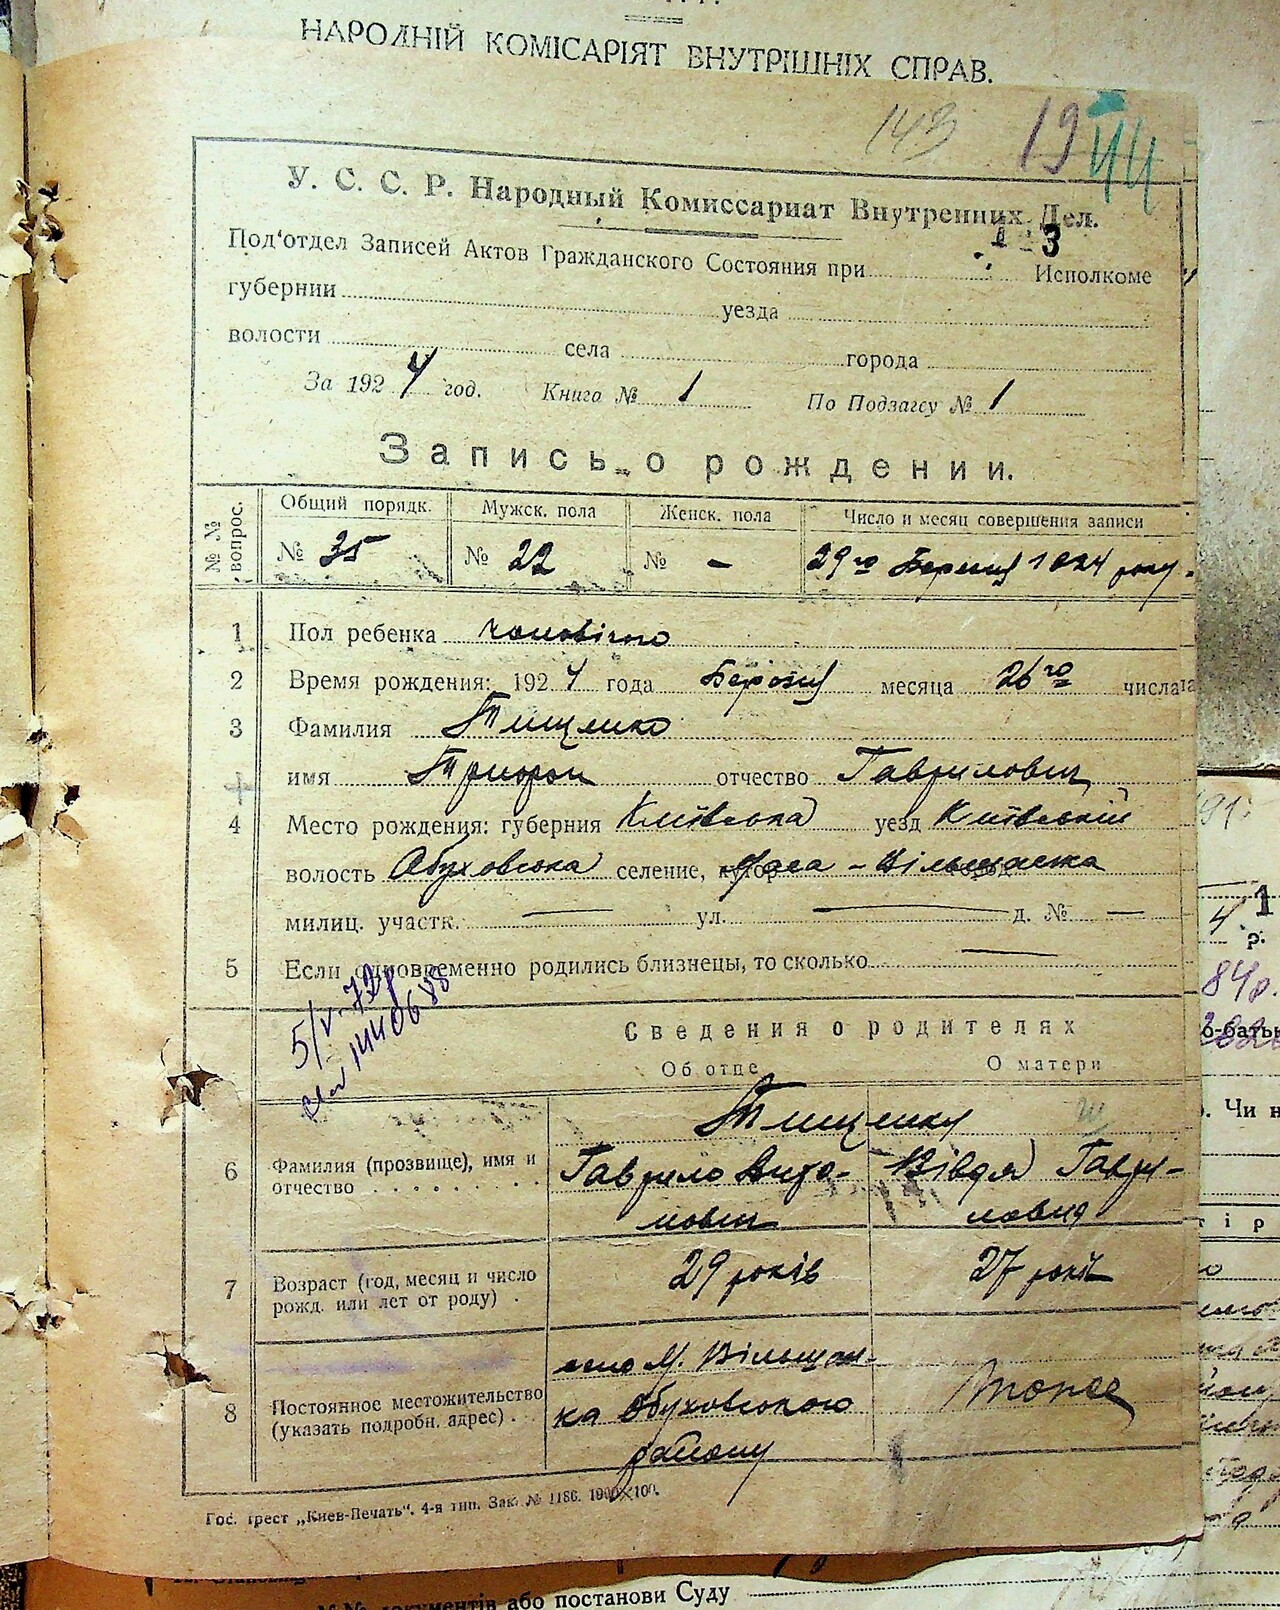 НАРОДНІЙ КОМІСАРІЯТ ВНУТРІШНІХ СПРАВ.
143 19 44
У. С. С. Р. Народный Комиссариат Внутренних Дел.
Под'отдел Записей Актов Гражданского Состояния при Исполкоме
губернии уезда
волости села города
За 1924 год. Книга № 1 По Подзагсу № 1
Запись о рождении.
№ № вопрос. Общий порядк. Мужск. пола Женск. пола Число и месяц совершения записи
№ 35 № 22 № - 29го Березня 1924 року.
1 Пол ребенка чоловічого
2 Время рождения: 1924 года Березня месяца 26го числа
3 Фамилия Тищенко
имя отчество Гаврилович
4 Место рождения: губерния Київська уезд Київський
волость Обуховська селение, Вільшанка
милиц. участк. — ул. — д. № —
5 Если одновременно родились близнецы, то сколько —
5/V-72р
Сведения о родителях
Об отце О матери
Тищенку
6 Фамилия (прозвище), имя и отчество Гаврило Вівдя Гаври-
ловна
7 Возраст (год, месяц и число рожд. или лет от роду) 29 років 27 років
8 Постоянное местожительство (указать подробн. адрес) село М. Вільшан-
ка Обуховського
району
Гос. трест „Киев-Печать". 4-я тип. Зак. № 1186. 1900×100.
або постанови Суду